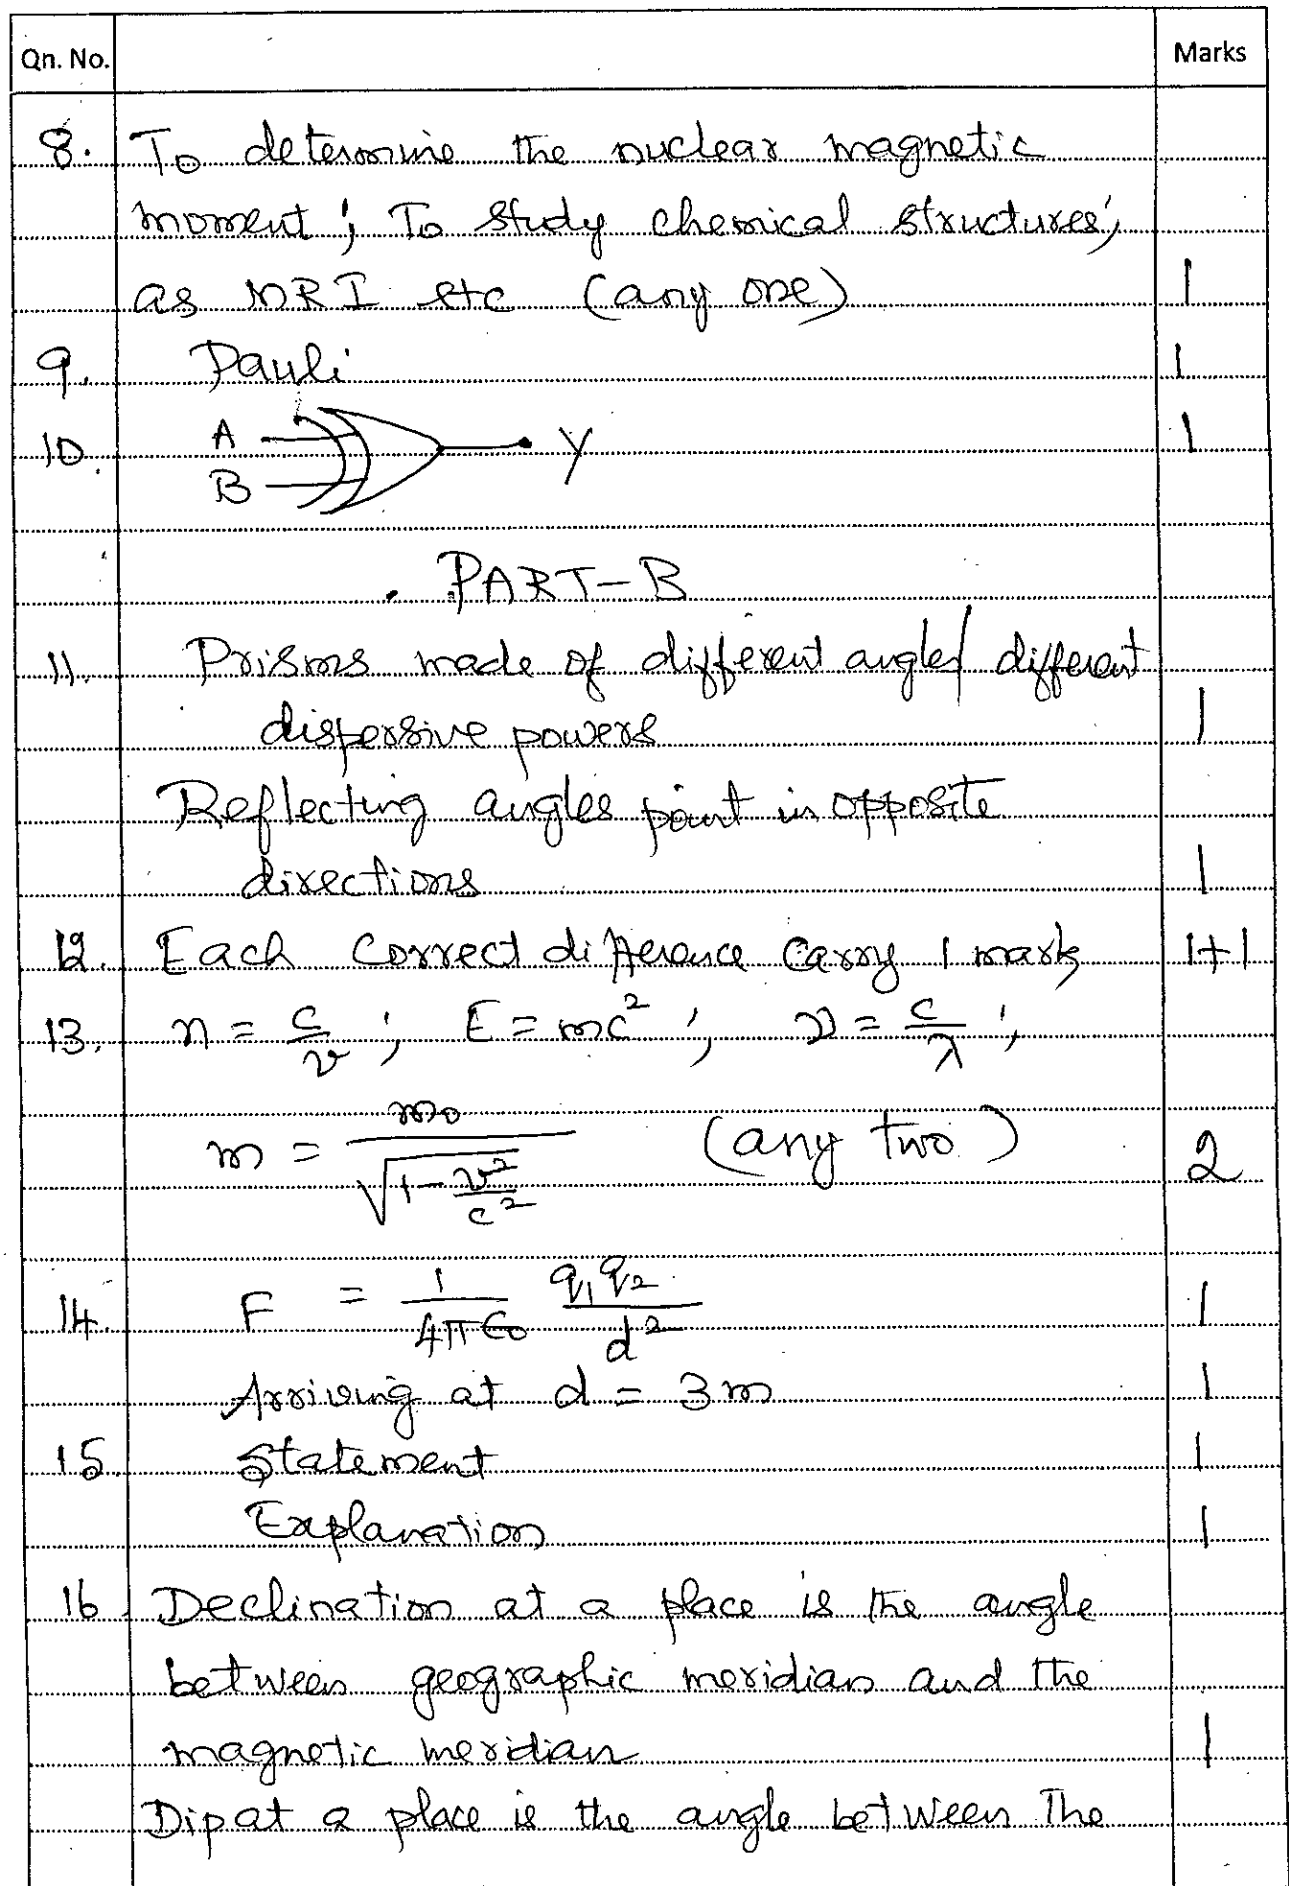 Qn. No. Marks
8. To determine the nuclear magnetic
moment; To study chemical structures;
as NRI etc (any one) 1
9. Pauli 1
10. A B Y 1
PART-B
11. Prisms made of different angles/ different
dispersive powers 1
Reflecting angles point in opposite
directions 1
12. Each correct difference carry 1 mark 1+1
13. n = c/v ; E = mc² ; ν = c/λ ;
m = m₀/√(1 - v²/c²) (any two) 2
14. F = 1/4π∈₀ q₁q₂/d² 1
Arriving at d = 3m 1
15. Statement 1
Explanation 1
16. Declination at a place is the angle
between geographic meridian and the
magnetic meridian 1
Dip at a place is the angle between the